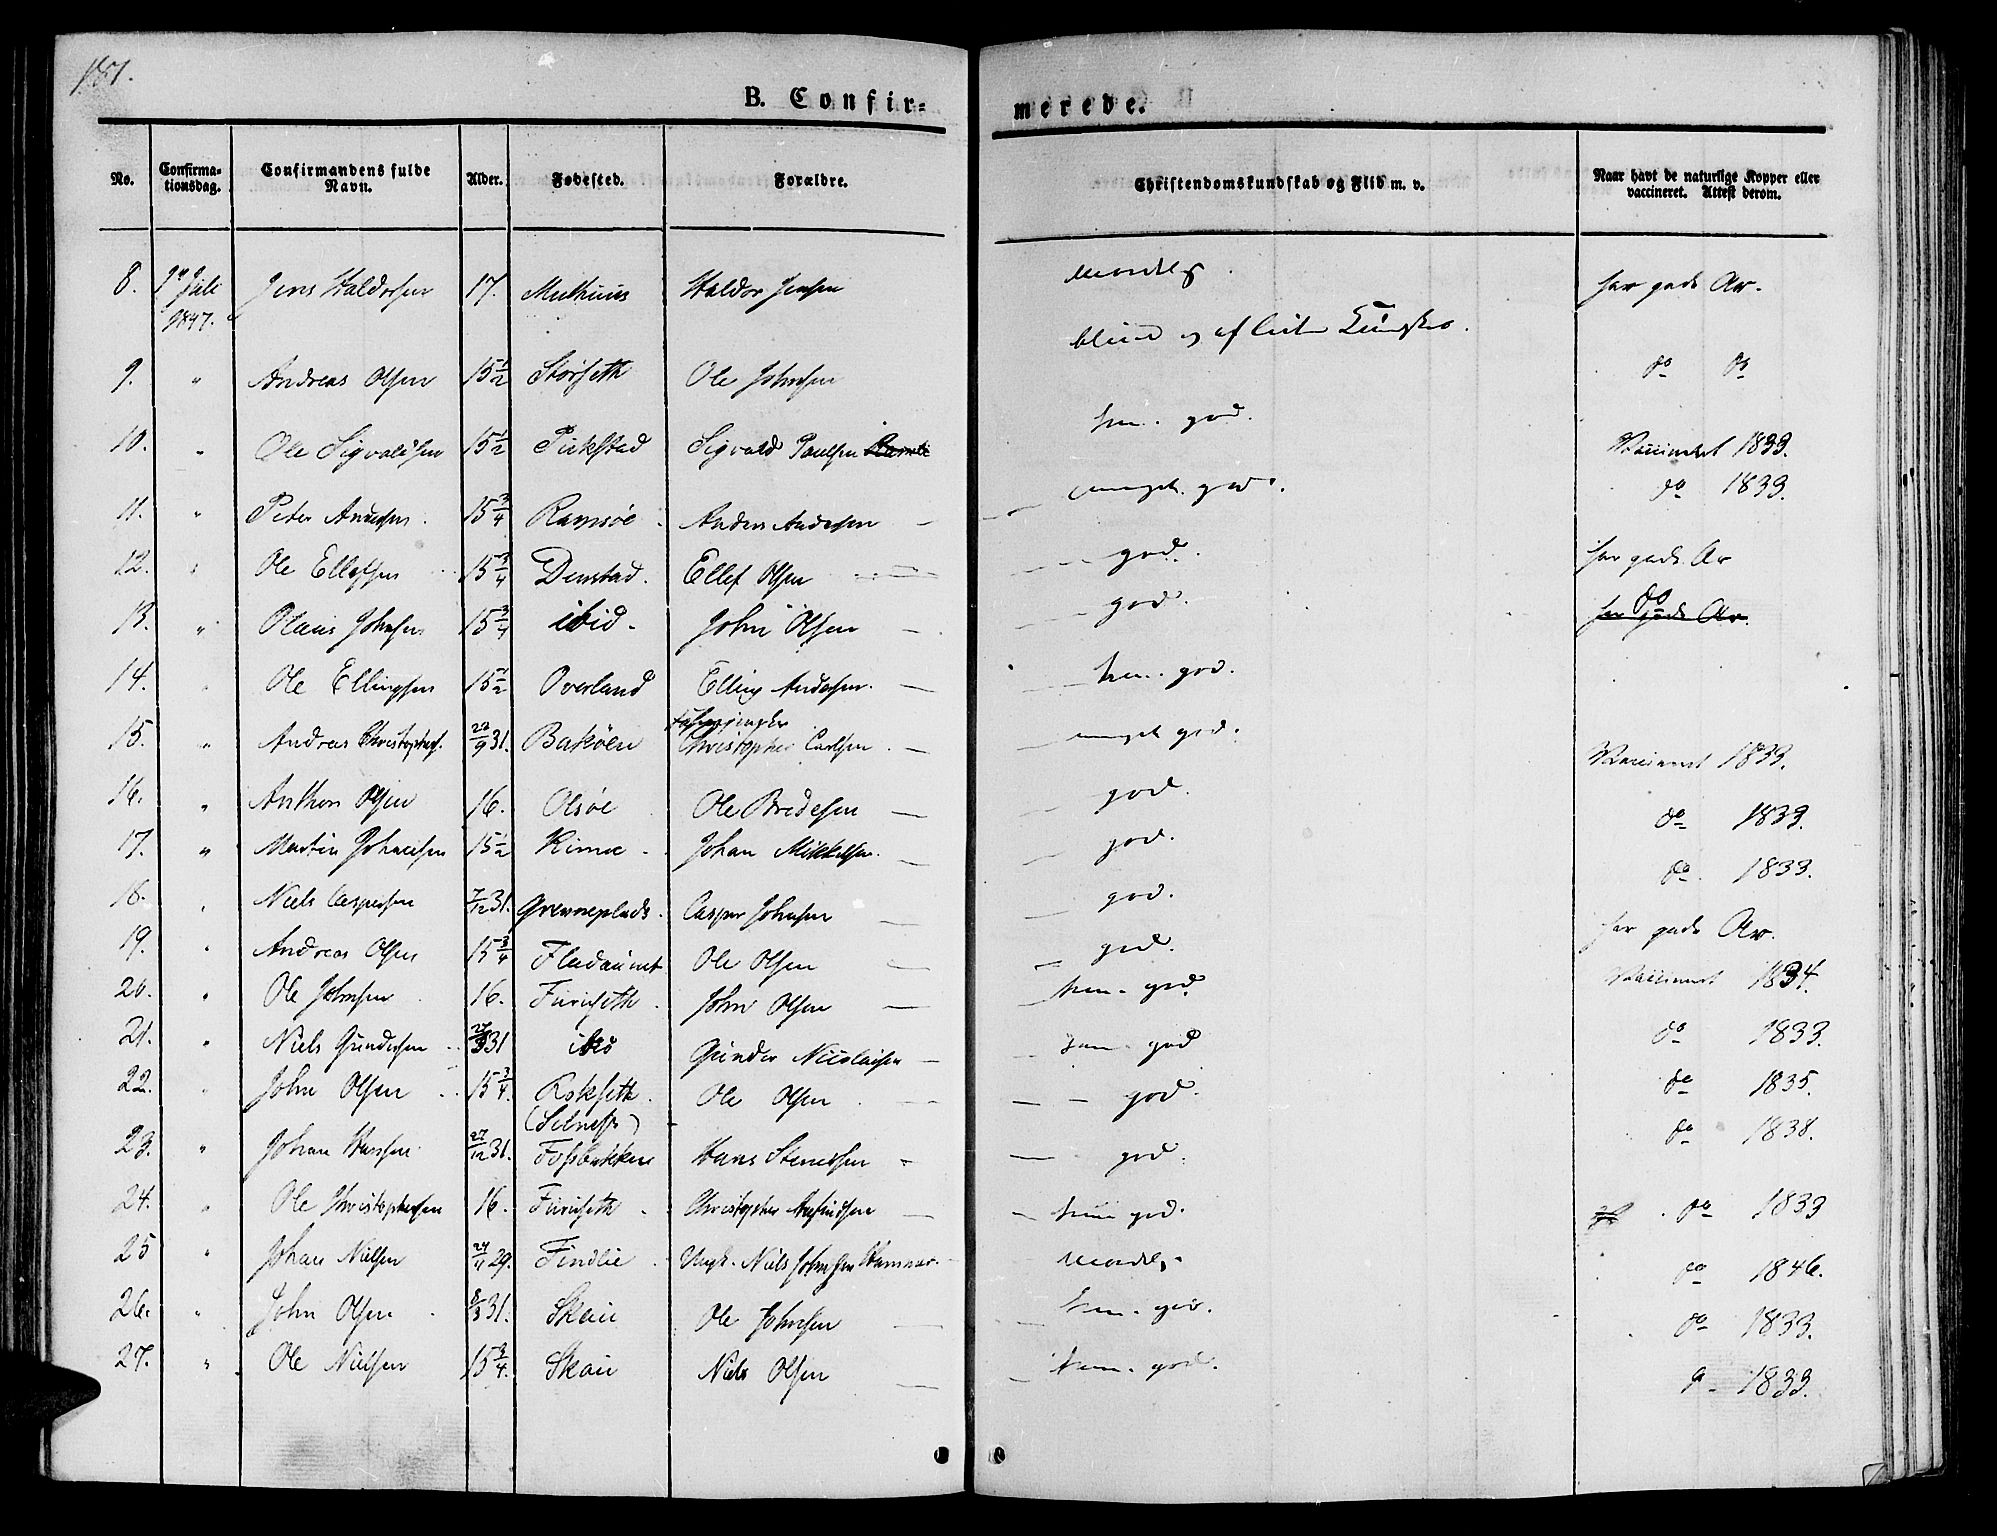 181.
B. Confir-
merede.
No. Confirma-tionsdag. Confirmandens fulde Navn. Alder. Fødested. Forældre. Christendomskundskab og Flid m. v. Naar havt de naturlige Kopper eller vaccineret. Attest derom.
8. Juli 1847. Jens Haldorsen 17. Haldor Jensen maadelig. har gode Ar.
9. " Andreas Olsen 15½ Storseth Ole Johnsen blind og af do do
10. " Ole Sigvaldsen 15½ Sigvald Paulsen god. Vaccineret 1833.
11. " Peter Andersen. 15¾ Ramsøe. Anders Andersen — meget god. do 1833.
12. " Ole Ellefsen 15¾ Denstad. Ellef Olsen — god. har gode Ar
13. " Olaus Johnsen 15¾ ibid. John Olsen — god. do har gode Ar.
14. " Ole Ellingsen 15½ Overland Elling Andersen. — god.
15. " Andreas Christophers. 31. Bakøen Christopher Carlsen. — meget god. Vaccineret 1833.
16. " Anthon Olsen 16. Olsøe Ole Bredesen — god. do 1833.
17. " Martin Johansen 15½ Rimoe. Johan Mikkelsen. — god. do 1833.
18. " Niels Caspersen 7/12 31. Casper Johnsen — god. har gode Ar.
19. " Andreas Olsen 15¾ Ole Olsen — god. Vaccineret 1834.
20. " Ole Johnsen 16. Furuseth. John Olsen — god do 1833.
21. " Niels Gundersen 31 ibid Gunder Nicolaisen — god do 1835.
22. " John Olsen 15¾. Rokseth. Ole Olsen. — god. do 1838.
23. " Johan Hansen 27/12 31. (Selnes) Fossbakken Hans Stenersen — god.
24. " Ole Christophersen 16. Furuseth. Christopher — god. do 1833
25 " Johan Nielsen 24/11 29. Findlie. Ungk. Niels Johnsen Hammer. maadelig. do 1846.
26. " John Olsen 8/3 31. Skau Ole Johnsen — god. do 1833.
27. " Ole Nielsen 15¾. Skau Niels Olsen — god. 1833.